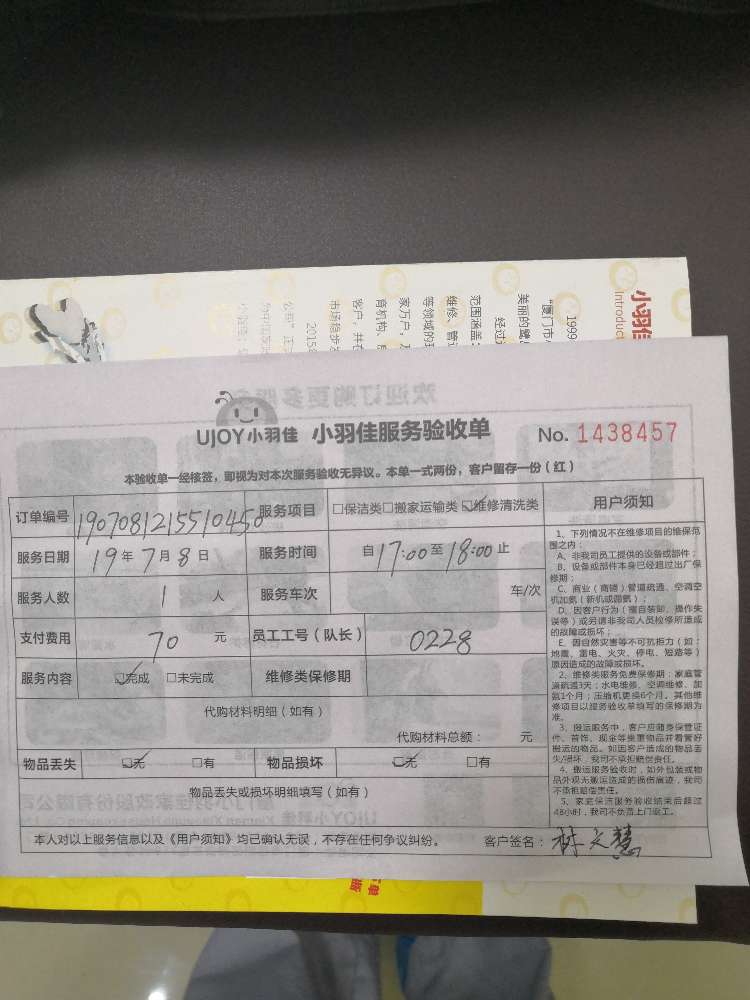 小羽佳
Introduc
1999
"厦门市
美丽的鹭
经过
范围涵盖
维修、管道
等领域的现
家万户,
育机构、
客户,并在
市场稳步发
2015
UJOY小羽佳 小羽佳服务验收单 No. 1438457
本验收单一经核签,即视为对本次服务验收无异议。本单一式两份,客户留存一份(红)
订单编号 190708121551045 0 服务项目 □保洁类□搬家运输类☑维修清洗类
服务日期 19年7月8日 服务时间 自17:00至18:00止
服务人数 1 人 服务车次 车/次
支付费用 70 元 员工工号(队长) 0228
服务内容 ☑完成 □未完成 维修类保修期
代购材料明细(如有)
代购材料总额: 元
物品丢失 ☑无 □有 物品损坏 ☑无 □有
物品丢失或损坏明细填写(如有)
本人对以上服务信息以及《用户须知》均已确认无误,不存在任何争议纠纷。 客户签名:林文慧
用户须知
1、下列情况不在维修项目的维保范
围之内:
A、非我司员工提供的设备或部件;
B、设备或部件本身已经超过出厂保
修期;
C、商业(商铺)管道疏通、空调空
机加氨(新机或漏氨);
D、因客户行为(擅自装卸、操作失
误等)或另请非我司人员检修所造成
的故障或损坏;
E、因自然灾害等不可抗拒力(如:
地震、雷电、火灾、停电、短路等)
原因造成的故障或损坏。
2、维修类服务免费保修期:家庭管
道疏通3天;水电维修、空调维修、加
氨1个月;压缩机更换6个月。其他维
修项目以服务验收单填写的保修期为
准。
3、搬运服务中,客户应随身保管证
件、首饰、现金等贵重物品并看管好
搬运的物品。如因客户造成的物品丢
失/损坏,我司不承担赔偿责任。
4、搬运服务验收时,如外包装或物
品外观无搬运造成的损伤痕迹,我司
不承担赔偿责任。
5、家庭保洁服务验收结束后超过
48小时,我司不负责上门返工。